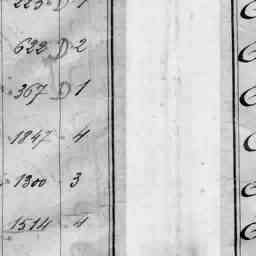 223 D 1
622 D 2
367 D 1
1847 4
1300 3
1514 4